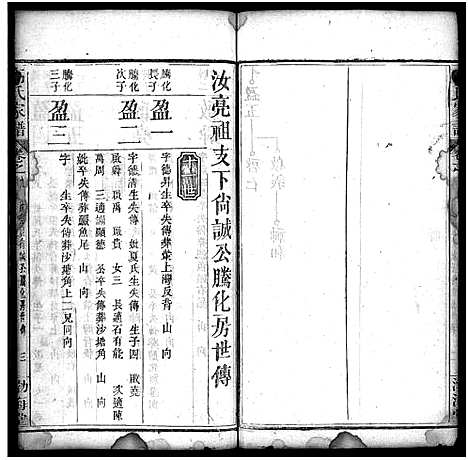 汝亮祖支下尚誠公騰化房世傳
騰化長子
盈一
字德昇生卒失傳葬葉上灣反背 山 向
騰化次子
盈二
字德清生失傳 娶夏氏生失傳 生子四 啟堯
啟舜 啟禹 啟貴 女三 長適石有能 次適陳
萬周 三適謝顯德 公卒失傳葬沙塘角 山 向
妣卒失傳葬 魚尾 山 向
騰化三子
盈三
字 生卒失傳葬沙塘角上二見同向
氏家譜
卷之
三
渤海堂